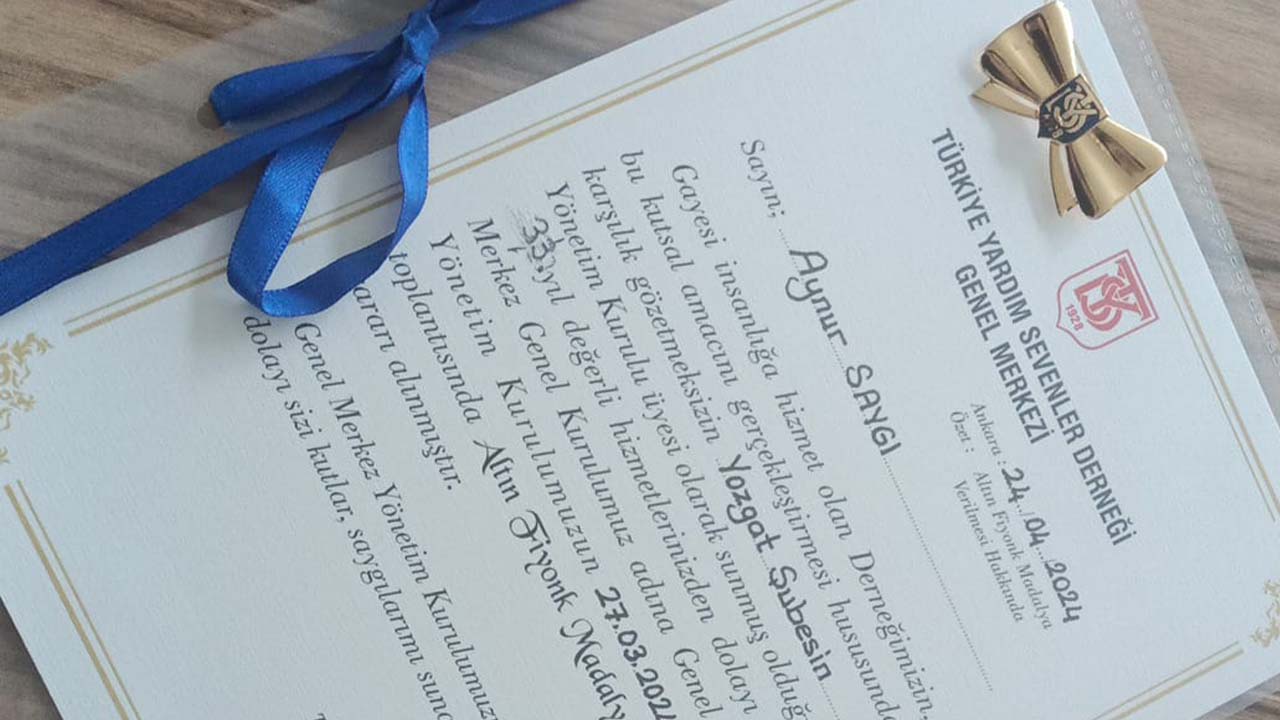 TÜRKİYE YARDIM SEVENLER DERNEĞİ
GENEL MERKEZİ
1928
Ankara : 24./04...2024
Özet : Altın Fiyonk Madalya
Verilmesi Hakkında
Sayın; Aynur SAYGI
Gayesi insanlığa hizmet olan Derneğimizin,
bu kutsal amacını gerçekleştirmesi hususunda
karşılık gözetmeksizin Yozgat Şubesin
Yönetim Kurulu üyesi olarak sunmuş olduğ
33.yıl değerli hizmetlerinizden dolayı
Merkez Genel Kurulumuz adına Genel
Yönetim Kurulumuzun 27.03.2024
toplantısında Altın Fiyonk Madaly
ararı alınmıştır.
Genel Merkez Yönetim Kurulumuz
dolayı sizi kutlar, saygılarımı sunc